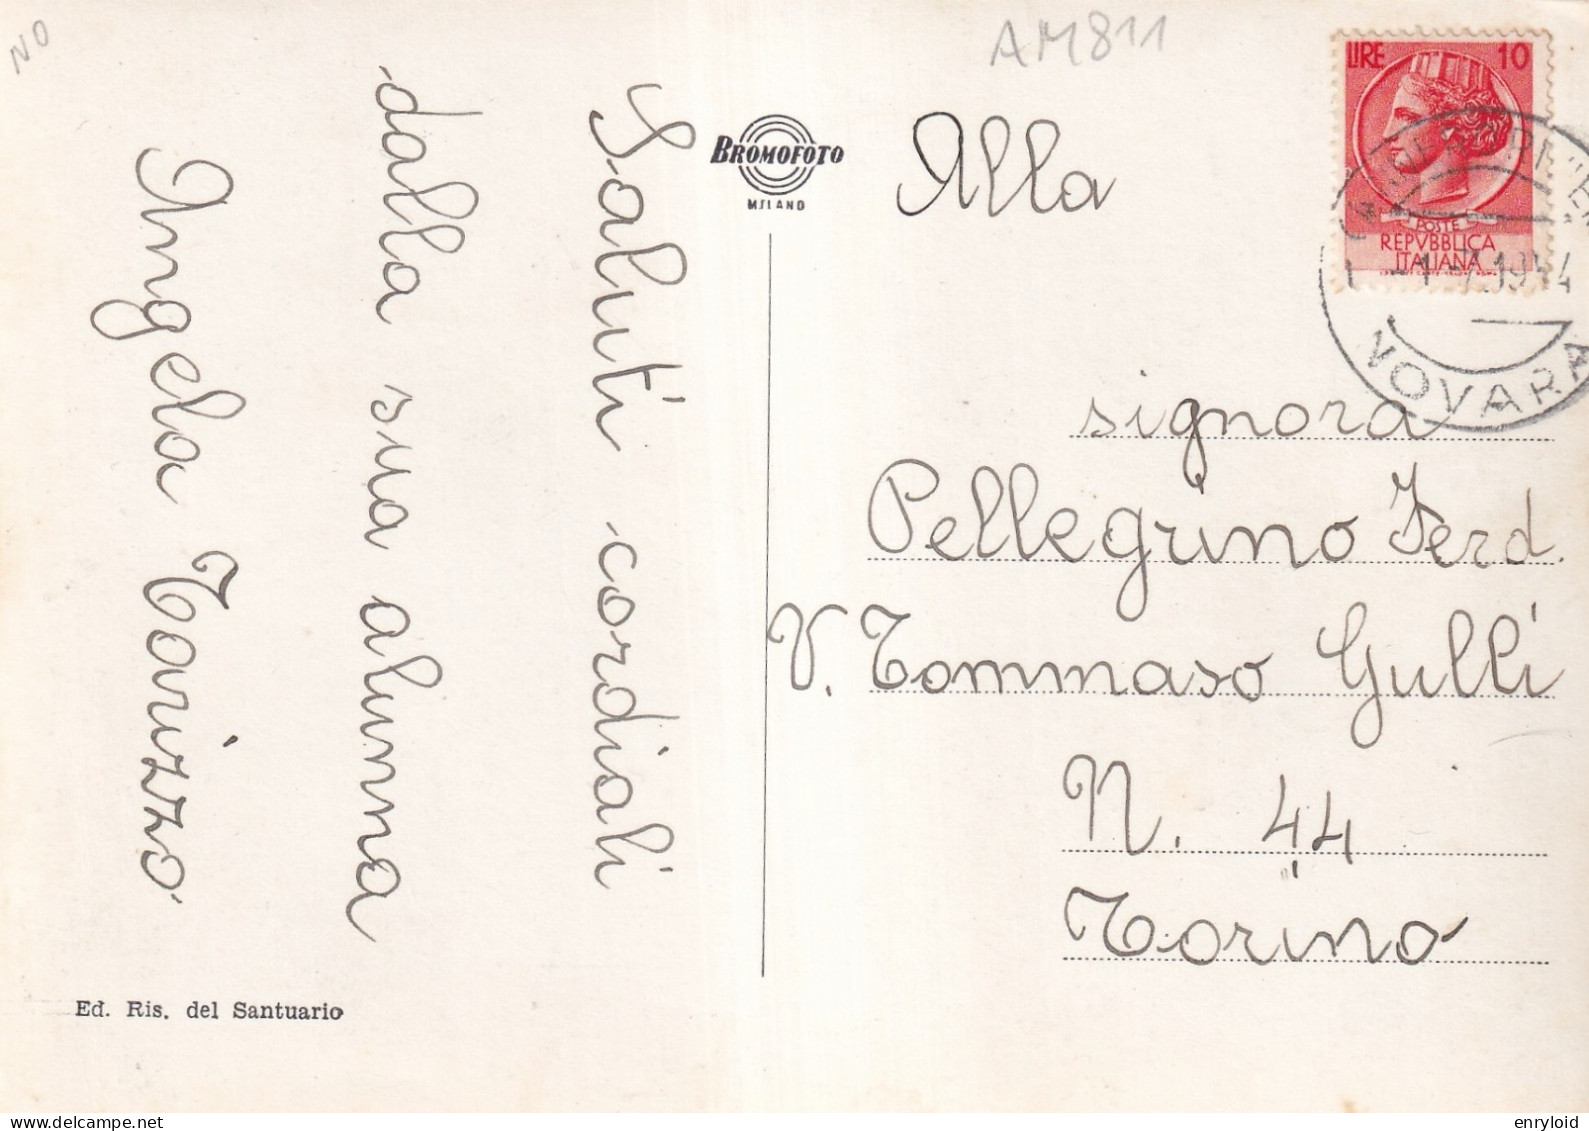 NO
AM811
Saluti cordiali
dalla sua alunna
Angela Tarizzo
BROMOFOTO
MILANO
LIRE 10
POSTE
REPVBBLICA
ITALIANA
NOVARA
Alla
signora
Pellegrino Ferd.
V. Tommaso Gulli
N. 44
Torino
Ed. Ris. del Santuario
enryloid